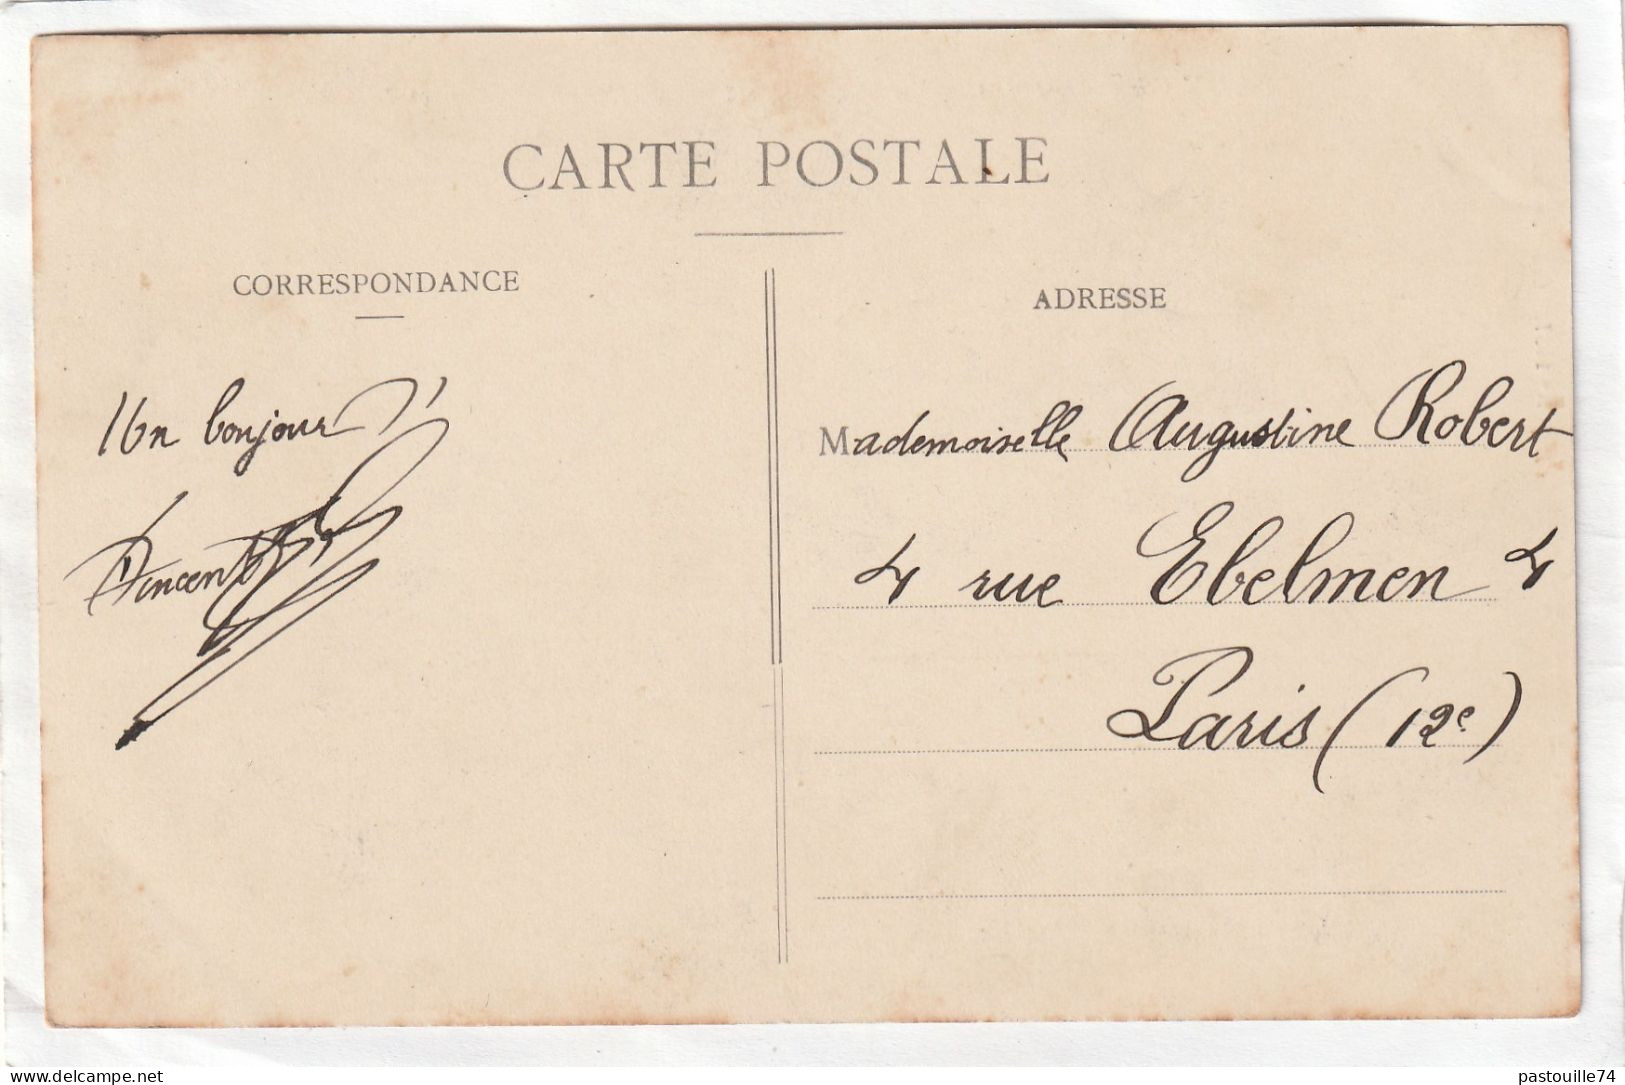 CARTE POSTALE
CORRESPONDANCE
Un bonjour
Vincent
ADRESSE
Mademoiselle Augustine Robert
4 rue Ebelmen 4
Paris (12e)
delcampe.net
pastouille74